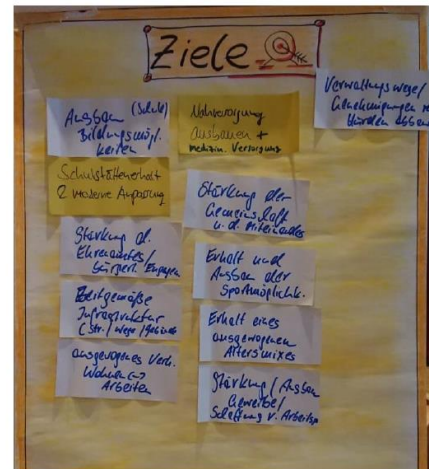 Ziele
Ausbau (Schule)
Bildungsmögl.
keiten
Schulstättenerhalt
& moderne Anpassung
Stärkung d.
Ehrenamtes/
bürgerl. Engagem.
Zeitgemäße
Infrastruktur
(Str./Wege/Gebäude
ausgewogenes Verh.
Wohnen <->
Arbeiten
Nahversorgung
ausbauen +
medizin. Versorgung
Stärkung der
Gemeinschaft
u. d. Miteinandes
Erhalt und
Ausbau der
Sportmöglichk.
Erhalt eines
ausgewogenen
Altersmixes
Stärkung/Ausbau
Gewerbe/
Schaffung v. Arbeitsp
Verwaltungswege/
Genehmigungen
Hürden abbau